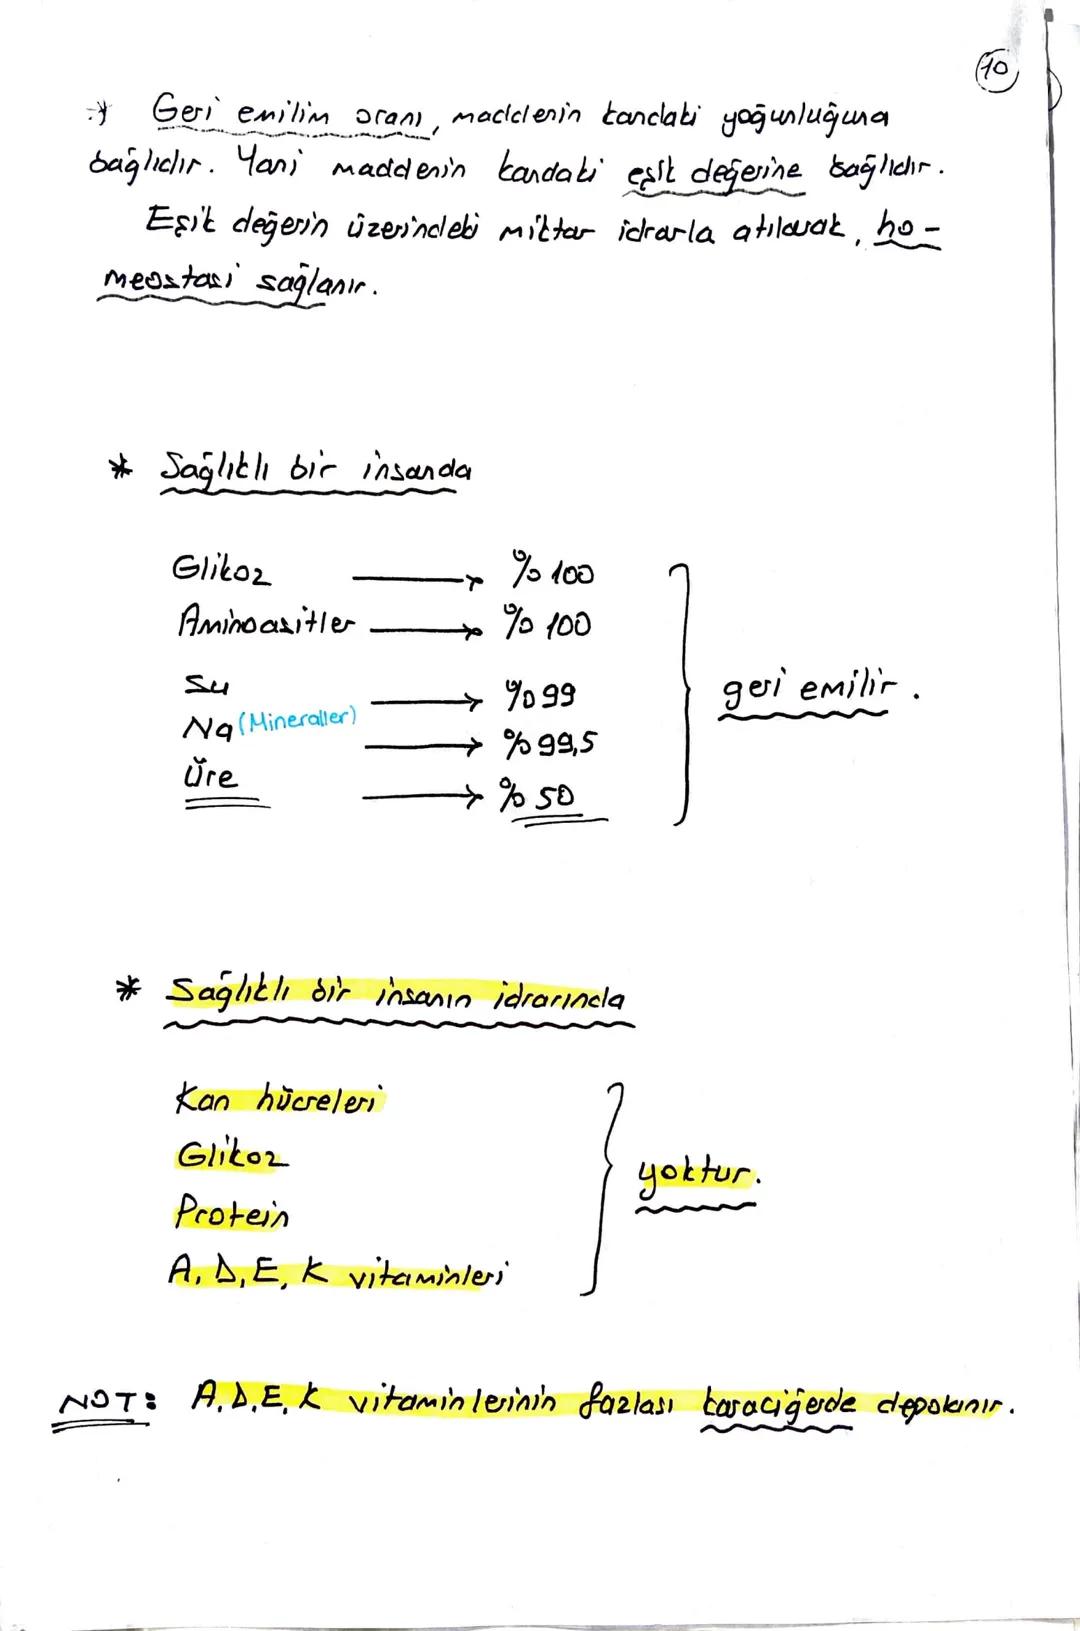 10
* Geri emilim oranı, maddenin kandaki yoğunluğuna
bağlıdır. Yani maddenin kandaki eşik değerine bağlıdır.
Eşik değerin üzerindeki miktar idrarla atılarak, ho-
meostasi sağlanır.
* Sağlıklı bir insanda
Glikoz → % 100
Aminoasitler → % 100
Su → %99
Na (Mineraller) → %99,5
Üre → % 50
geri emilir.
* Sağlıklı bir insanın idrarında
Kan hücreleri
Glikoz
Protein
A, D, E, K vitaminleri
yoktur.
NOT: A, D, E, K vitaminlerinin fazlası karaciğerde depolanır.